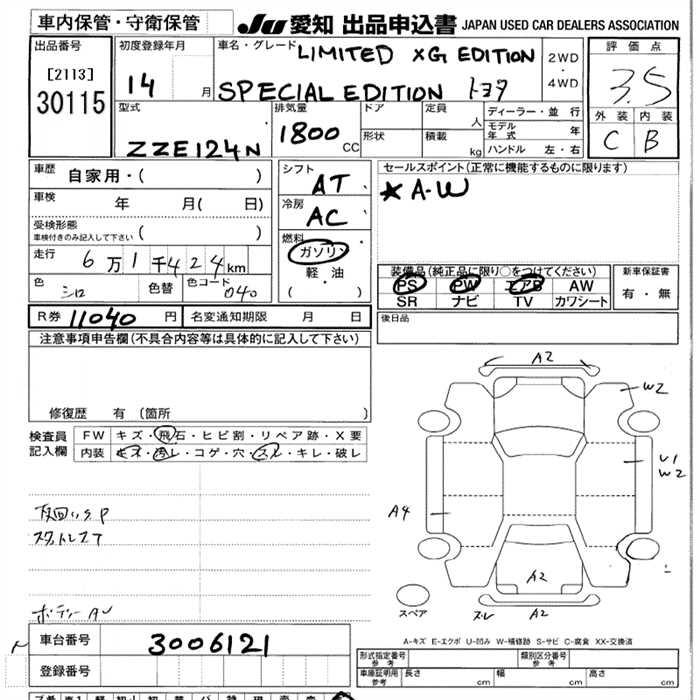 車内保管・守衛保管
JU 愛知 出品申込書 JAPAN USED CAR DEALERS ASSOCIATION
出品番号
[2113]
30115
初度登録年月
14 月
車名・グレード LIMITED XG EDITION
SPECIAL EDITION トヨタ
2WD
・
4WD
評価点
3.5
外装 内装
C B
型式
ZZE124N
排気量
1800 CC
ドア
形状
定員 人
積載 kg
ディーラー・並行
モデル年式 年
ハンドル 左・右
車歴 自家用・( )
車検 年 月( 日)
受検形態
車検付きのみ記入して下さい ( )
走行 6万1千424km
色 シロ 色替 色コード 040
シフト
AT
冷房
AC
燃料
ガソリン
・
軽・油
( )
セールスポイント(正常に機能するものに限ります)
★A-W
装備品(純正品に限り○をつけてください)
PS PW エアB AW
SR ナビ TV カワシート
新車保証書
有・無
R券 11040 円 名変通知期限 月 日
後日品
注意事項申告欄(不具合内容等は具体的に記入して下さい)
修復歴 有 (箇所 )
検査員
記入欄
FW キズ・飛石・ヒビ割・リペア跡・X要
内装 キズ・汚レ・コゲ・穴・スレ・キレ・破レ
A2
W2
U1
W2
A4
A2
スペア
スレ A2
A-キズ E-エクボ U-凹み W-補修跡 S-サビ C-腐食 XX-交換済
車台番号 3006121
登録番号
型式指定番号
参考
類別区分番号
参考
車庫証明用
参考
長さ cm 幅 cm 高さ cm